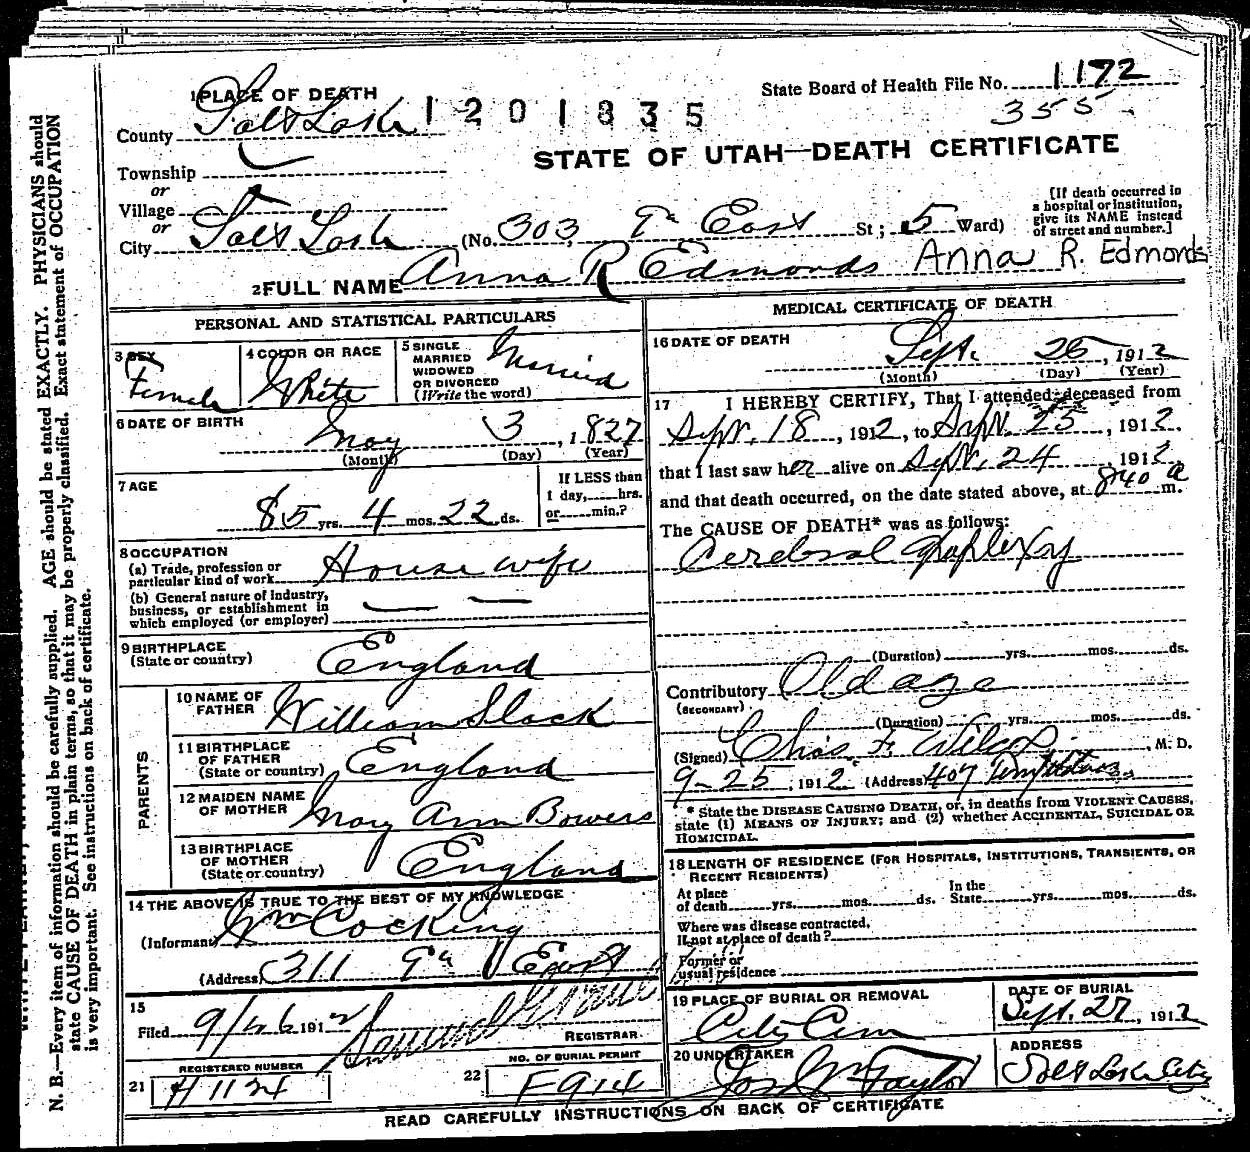 1 PLACE OF DEATH
1201835
State Board of Health File No. 1172
355
County Salt Lake
STATE OF UTAH—DEATH CERTIFICATE
Township
or
Village
or
City Salt Lake (No. 303, 9th East St; 5 Ward)
[If death occurred in
a hospital or institution,
give its NAME instead
of street and number.]
2 FULL NAME Anna R Edmonds Anna R. Edmonds
PERSONAL AND STATISTICAL PARTICULARS
3 SEX
Female
4 COLOR OR RACE
White
5 SINGLE
MARRIED
WIDOWED
OR DIVORCED
(Write the word)
Married
6 DATE OF BIRTH
May 3, 1827
(Month) (Day) (Year)
7 AGE
85 yrs. 4 mos. 22 ds.
If LESS than
1 day, hrs.
or min.?
8 OCCUPATION
(a) Trade, profession or
particular kind of work House wife
(b) General nature of industry,
business, or establishment in
which employed (or employer)
9 BIRTHPLACE
(State or country) England
PARENTS
10 NAME OF
FATHER William Slack
11 BIRTHPLACE
OF FATHER
(State or country) England
12 MAIDEN NAME
OF MOTHER Mary Ann Bowers
13 BIRTHPLACE
OF MOTHER
(State or country) England
14 THE ABOVE IS TRUE TO THE BEST OF MY KNOWLEDGE
(Informant) Wm Cocking
(Address) 311 9th East
15
Filed 9/26 1912
REGISTRAR.
REGISTERED NUMBER
21 H1124
NO. OF BURIAL PERMIT
22 F914
MEDICAL CERTIFICATE OF DEATH
16 DATE OF DEATH
Sept. 25, 1912
(Month) (Day) (Year)
17 I HEREBY CERTIFY, That I attended deceased from
Sept. 18, 1912, to Sept. 25, 1912.
that I last saw her alive on Sept. 24 1912.
and that death occurred, on the date stated above, at 840 a m.
The CAUSE OF DEATH* was as follows:
Cerebral Apoplexy
(Duration) yrs. mos. ds.
Contributory Old age
(SECONDARY)
(Duration) yrs. mos. ds.
(Signed) Chas. F. Wilcox, M. D.
9-25, 1912 (Address) 407
* State the DISEASE CAUSING DEATH, or, in deaths from VIOLENT CAUSES,
state (1) MEANS OF INJURY; and (2) whether ACCIDENTAL, SUICIDAL OR
HOMICIDAL.
18 LENGTH OF RESIDENCE (FOR HOSPITALS, INSTITUTIONS, TRANSIENTS, OR
RECENT RESIDENTS)
At place
of death yrs. mos. ds.
In the
State yrs. mos. ds.
Where was disease contracted,
If not at place of death?
Former or
usual residence
19 PLACE OF BURIAL OR REMOVAL
City Cem
DATE OF BURIAL
Sept. 27, 1912
20 UNDERTAKER
Jos Wm Taylor
ADDRESS
Salt Lake City
READ CAREFULLY INSTRUCTIONS ON BACK OF CERTIFICATE
N. B.—Every item of information should be carefully supplied. AGE should be stated EXACTLY. PHYSICIANS should
state CAUSE OF DEATH in plain terms, so that it may be properly classified. Exact statement of OCCUPATION
is very important. See instructions on back of certificate.